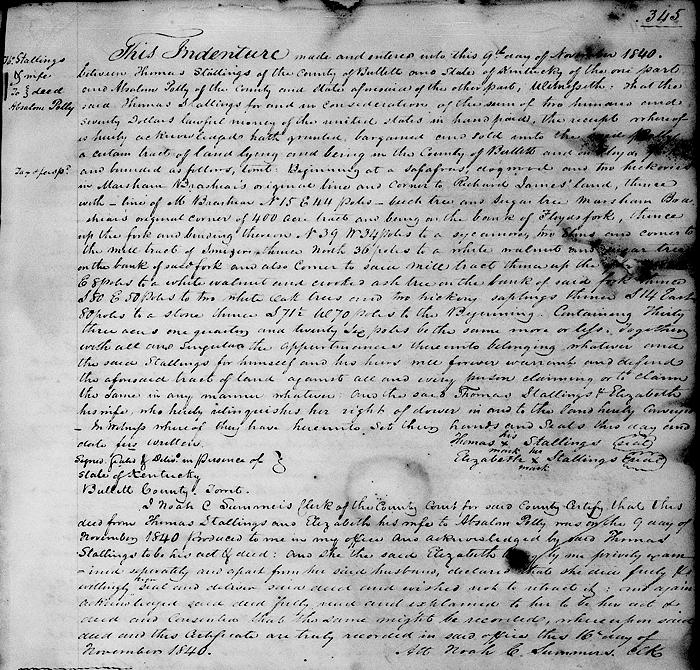 345
Ths Stallings
& wife
To } deed
Absalom Polly
This Indenture made and entered into this 9th day of November 1840.
between Thomas Stallings of the County of Bullett and State of Kentucky of the one part
and Absalom Polly of the County and State aforesaid of the other part, Witnesseth: that the
said Thomas Stallings for and in consideration of the sum of two hundred and
seventy Dollars lawful money of the united states in hand paid, the receipt whereof
is hereby acknowledged hath granted, bargained and sold unto the said Polly
a certain tract of land lying and being in the County of Bullett and on Floyds
and bounded as follows, towit: Beginning at a Sasafras, dogwood and two hickories
in Marsham Brashear's original line and corner to Richard James' land, thence
with line of M Brashear N 15 E 44 poles beech tree and Sugar tree Marsham Bra
shears original corner of 400 acre tract and being on the bank of Floyds fork, thence
up the fork and binding thereon N 39 W 34 poles to a sycamore, two Elms and corner to
the mill tract of thence North 36 poles to a white walnut and sugar tree
on the bank of said fork and also Corner to said Mill tract thence up the
E 8 poles to a white walnut and crooked ash tree on the bank of said fork thence
S 80 E 50 Poles to two white oak trees and two hickory saplings thence S 14 East
80 poles to a stone thence S 71½ W 70 poles to the Beginning. Containing Thirty
three acres one quarter and twenty six poles be the same more or less. Together
with all and singular the appurtenances thereunto belonging whatever and
the said Stallings for himself and his heirs will forever warrant and defend
the aforesaid tract of land against all and every person claiming or to claim
the same in any manner whatever: And the said Thomas Stallings & Elizabeth
his wife, who hereby relinquishes her right of dower in and to the land hereby Conveyed
- In witness whereof they have hereunto, Set their hands and Seals this day and
date first written.
Thomas his x mark Stallings Seal
Signed Sealed & Delivd. in presence of }
Elizabeth her x mark Stallings Seal
State of Kentucky
Bullett County, Towit.
I Noah C Summers Clerk of the County Court for said County Certify that this
deed from Thomas Stallings and Elizabeth his wife to Absalom Polly was on the 9 day of
November 1840 produced to me in my office and acknowledged by said Thomas
Stallings to be his act & deed: and she the said Elizabeth by me privily exam
-ined seperately and apart from her said husband, declared that she did freely &
willingly seal and deliver said deed and wished not to retract it: and again
acknowledged said deed freely read and explained to her to be her act &
deed and Consented that the same might be recorded, whereupon said
deed and this Certificate are truly recorded in said office this 16th day of
November 1840.
Att Noah C. Summers. clk